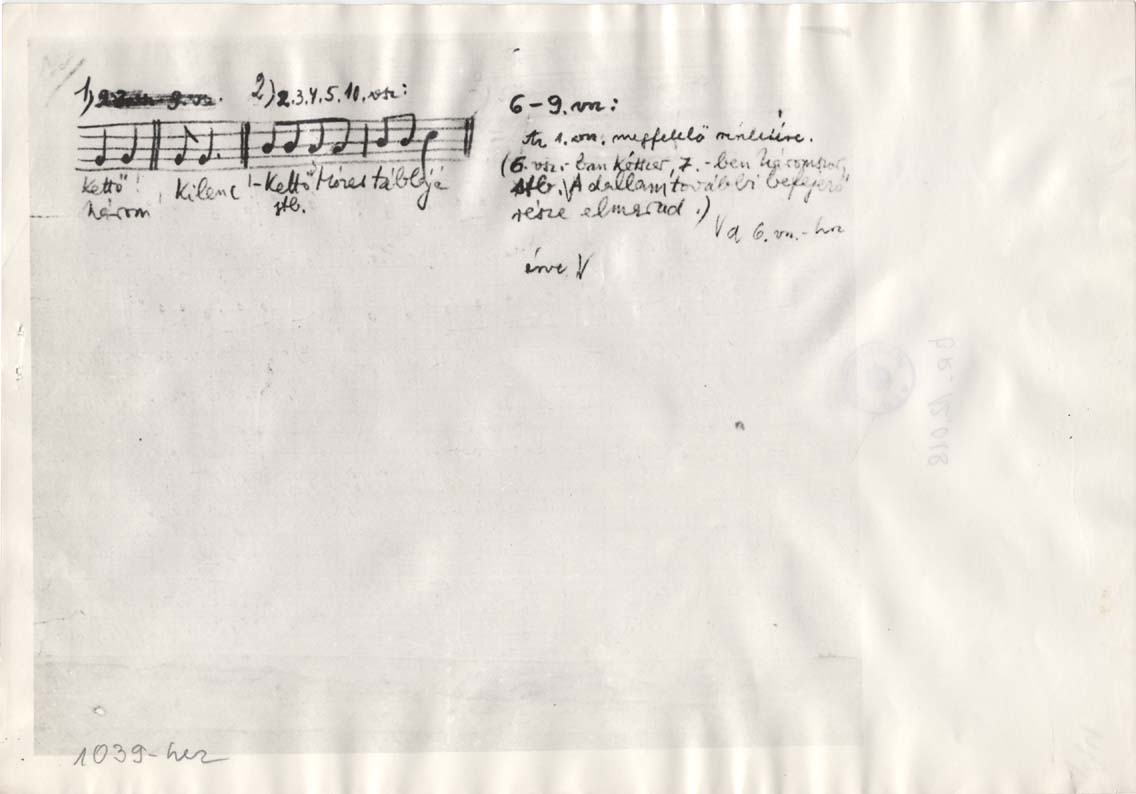 1)
2) 2.3.4.5.10. vsz:
Kettő! , Kilenc! - Kettő Mózes táblája
három stb.
6-9. vsz:
Az 1. vsz. megfelelő részletére.
(6. vsz.-ban kétszer, 7.-ben háromszor,
stb. A dallam további befejező
része elmarad.)
a 6. vsz.-hoz
írve
1039-hez
BR. 12018